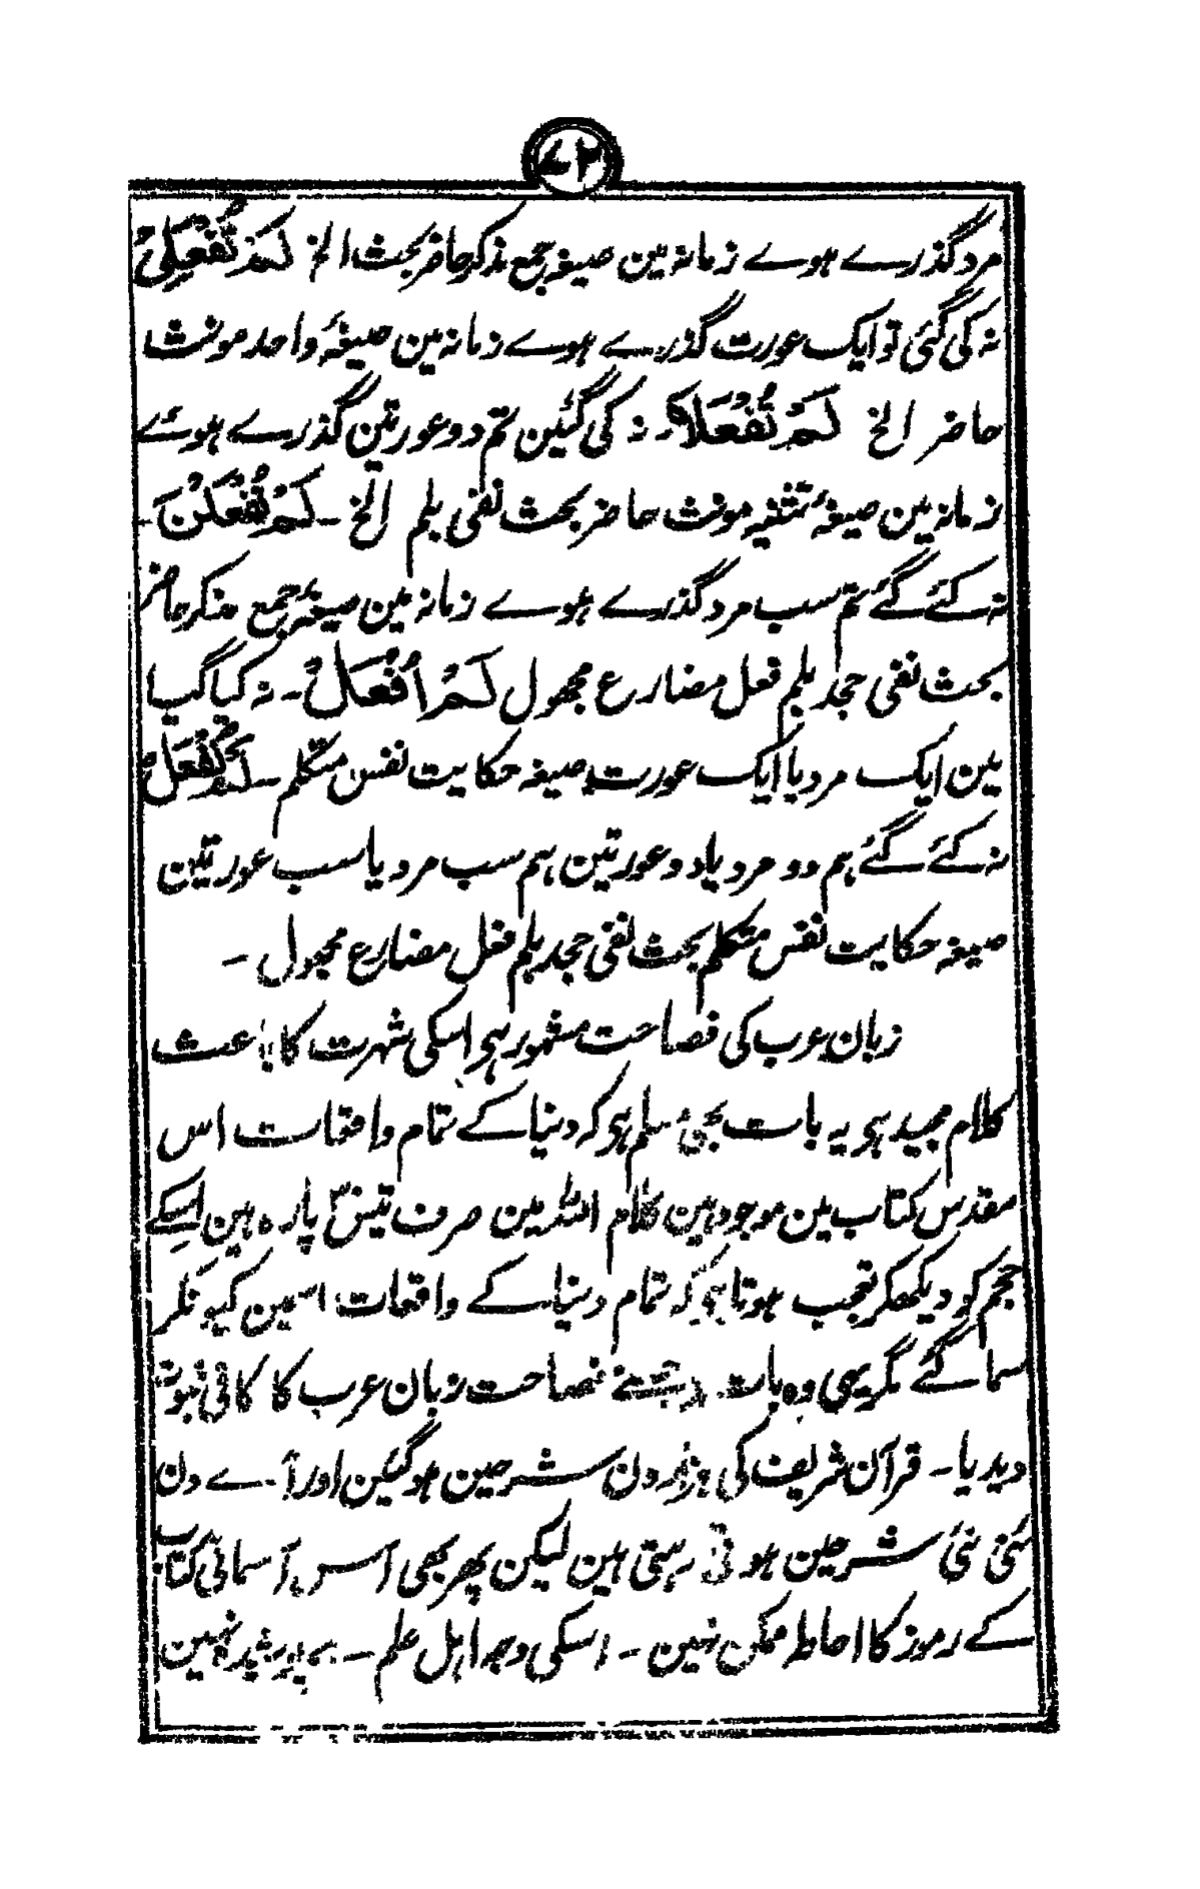 ۷۲
مرد گذرے ہوے زمانہ مین صیغہ جمع مذکر حاضر بحث الخ لَمْ تُفْعَلِیْ
نہ کی گئی تو ایک عورت گذرے ہوے زمانہ مین صیغۂ واحد مونث
حاضر الخ لَمْ تُفْعَلَا۔ نہ کی گئین تم دو عورتین گذرے ہوئے
زمانہ مین صیغۂ تثنیہ مونث حاضر بحث نفی بلم الخ ۔ لَمْ تُفْعَلْنَ ۔
نہ کئے گئے تم سب مرد گذرے ہوے زمانہ مین صیغۂ جمع مذکر حاضر
بحث نفی حجد بلم فعل مضارع مجہول لَمْ اُفْعَلْ ۔ نہ کیا گیا
مین ایک مرد یا ایک عورت صیغہ حکایت نفس متکلم ۔ لَمْ نُفْعَلْ
نہ کئے گئے ہم دو مرد یا دو عورتین ہم سب مرد یا سب عورتین
صیغہ حکایت نفس متکلم بحث نفی حجد بلم فعل مضارع مجہول ۔
زبان عرب کی فصاحت مشہور ہی اسکی شہرت کا باعث
کلام مجید ہی یہ بات بھی مسلم ہی کہ دنیا کے تمام واقعات اس
مقدس کتاب مین موجود ہین کلام اللہ مین صرف تیس پارہ ہین اسکے
حجم کو دیکھکر تعجب ہوتا ہی کہ تمام دنیا کے واقعات اسمین کیونکر
سما گئے مگر یہی وہ بات جسنے فصاحت زبان عرب کا کافی ثبوت
دیدیا ۔ قرآن شریف کی ہزارون شرحین ہوگئین اور آے دن
نئی نئی شرحین ہوتی رہتی ہین لیکن پھر بھی اس آسمانی کتاب
کے رموز کا احاطہ ممکن نہین ۔ اسکی وجہ اہل علم ۔ پر پوشیدہ نہین